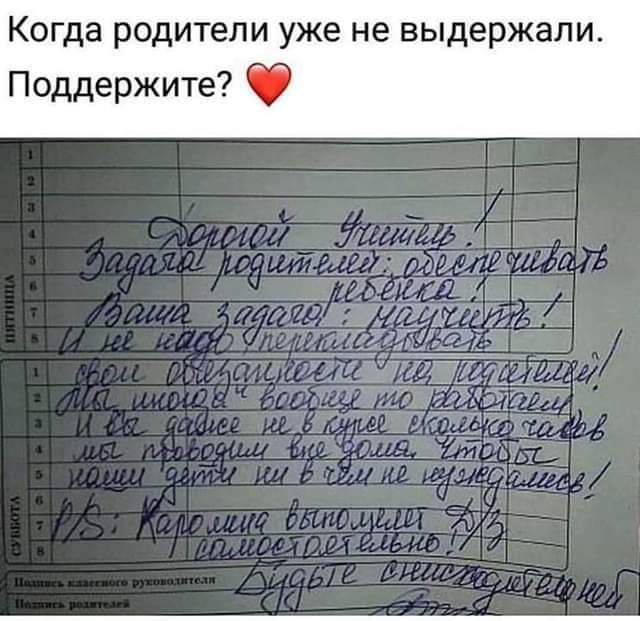 Когда родители уже не выдержали.
Поддержите? ❤️
1
2
3
4 Дорогой Учитель!
5 Задача родителей: обеспечивать
6 ребёнка!
7 Ваша задача: научить!
8 И не надо перекладывать
ПЯТНИЦА
1 свои обязанности на родителей!
2 Мы иногда вообще то работаем
3 И Вы даже не в курсе сколько часов
4 мы проводим вне дома, чтобы
5 наши дети ни в чём не нуждались!
6
7 P/S: Каролина выполняет Д/З
8 самостоятельно!
СУББОТА
Подпись классного руководителя
Будьте снисходительней
Подпись родителей